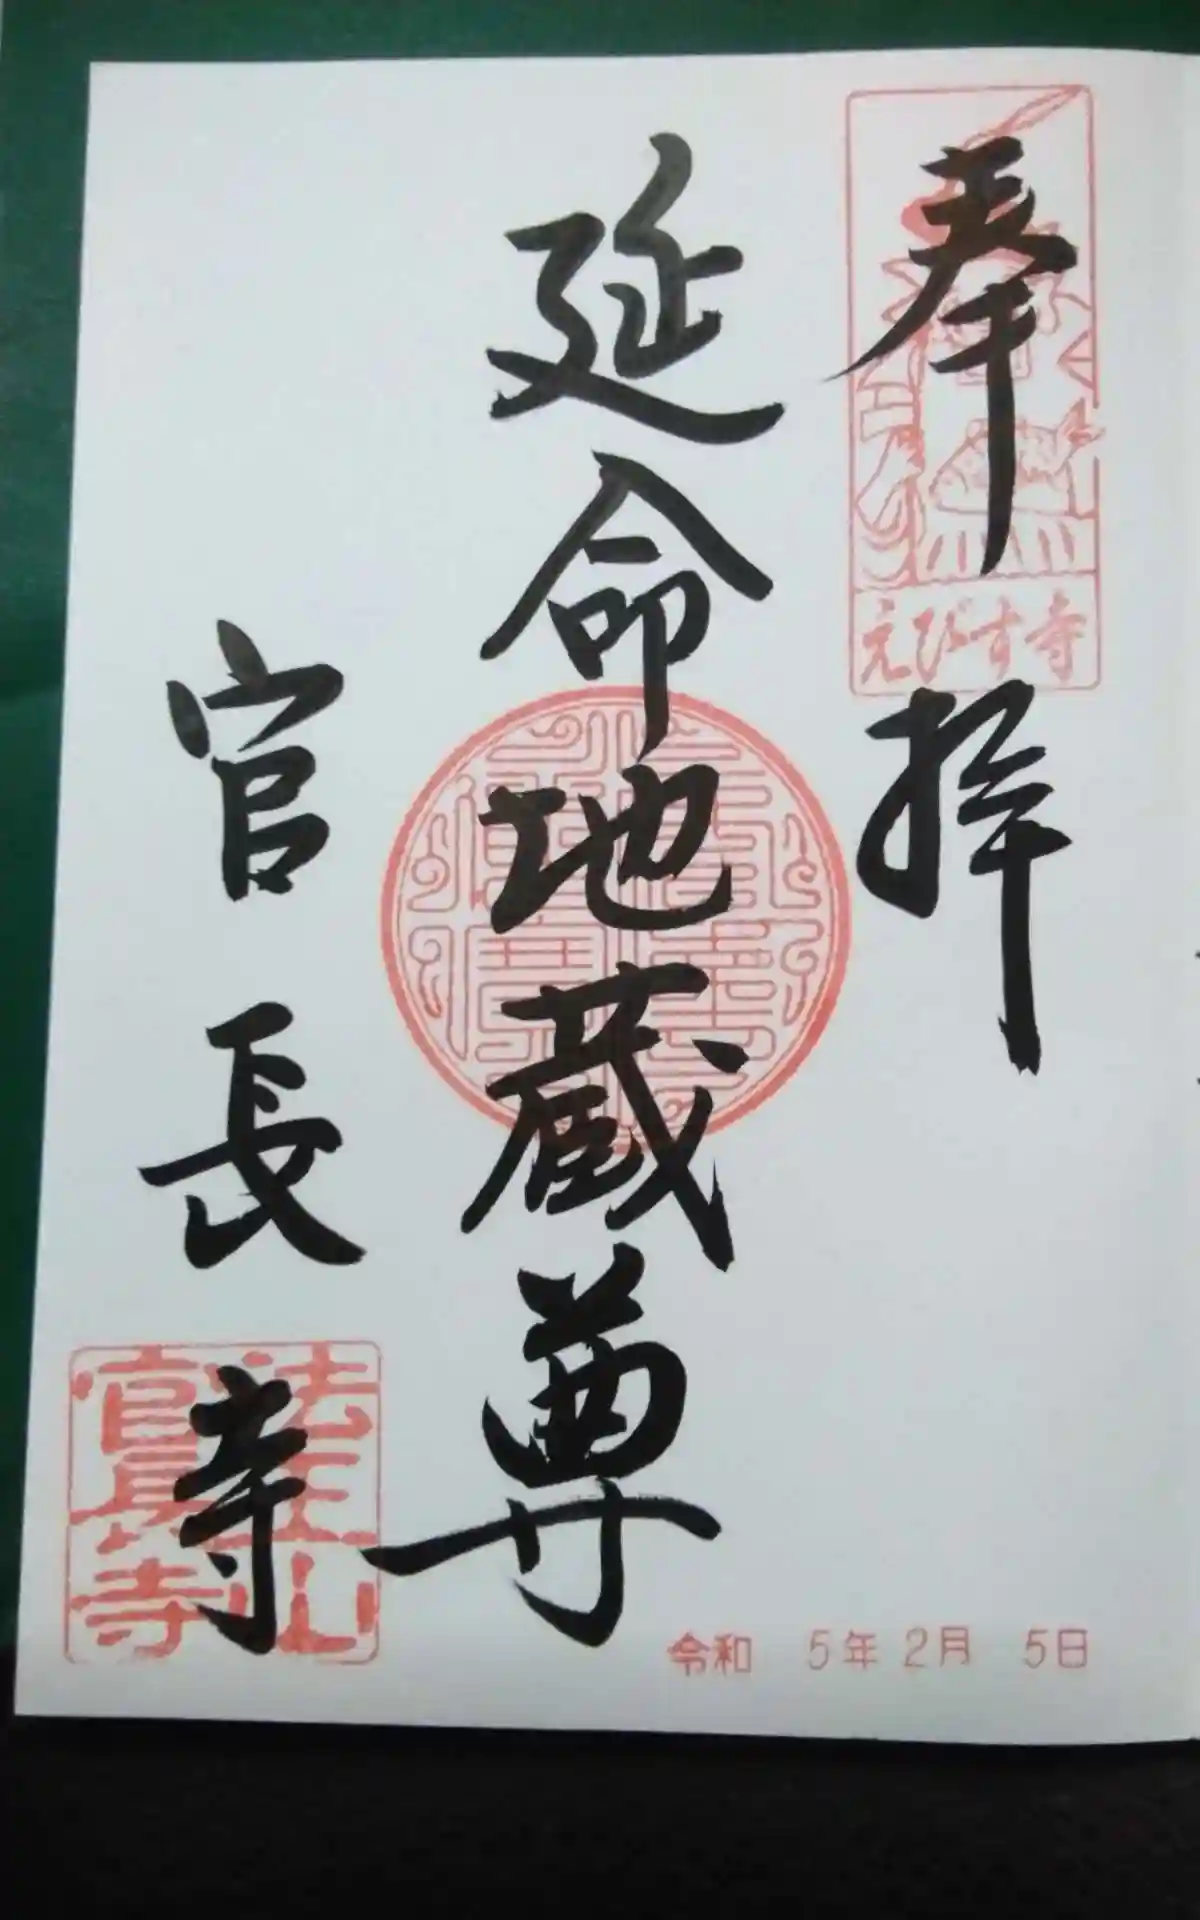 奉拝
えびす寺
延命地蔵尊
官長寺
法王山
官長寺
令和 5年 2月 5日